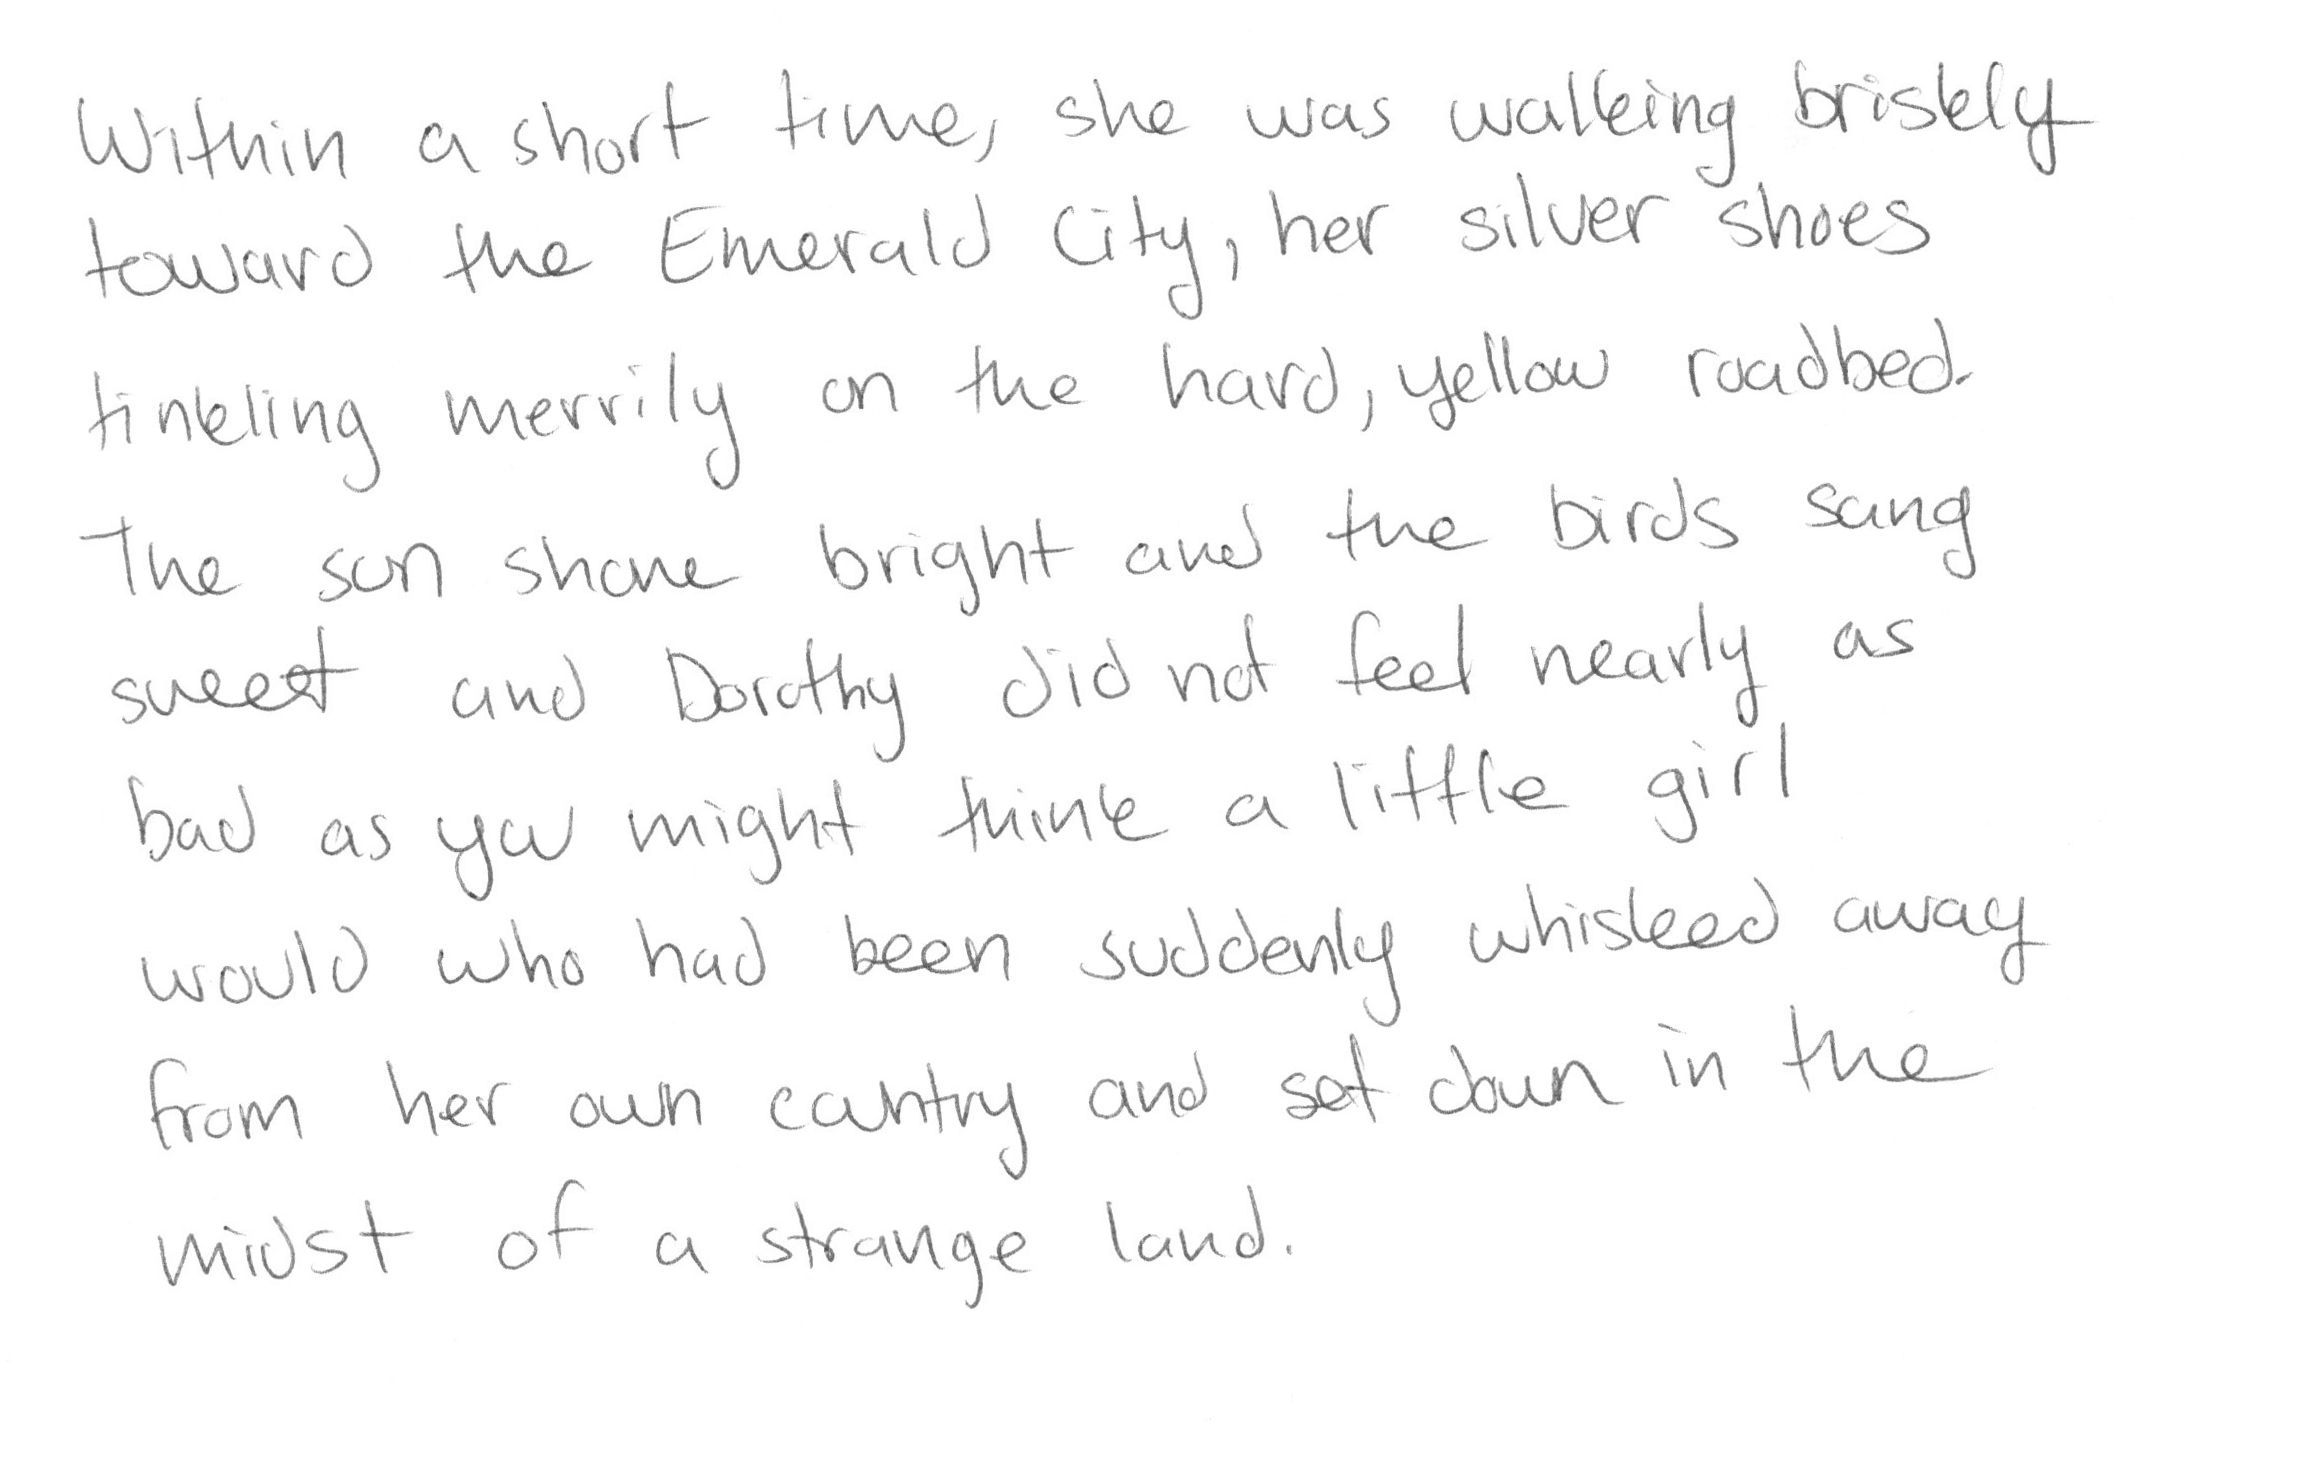 Within a short time, she was walking briskly
toward the Emerald City, her silver shoes
tinkling merrily on the hard, yellow roadbed.
The sun shone bright and the birds sang
sweet and Dorothy did not feel nearly as
bad as you might think a little girl
would who had been suddenly whisked away
from her own country and set down in the
midst of a strange land.